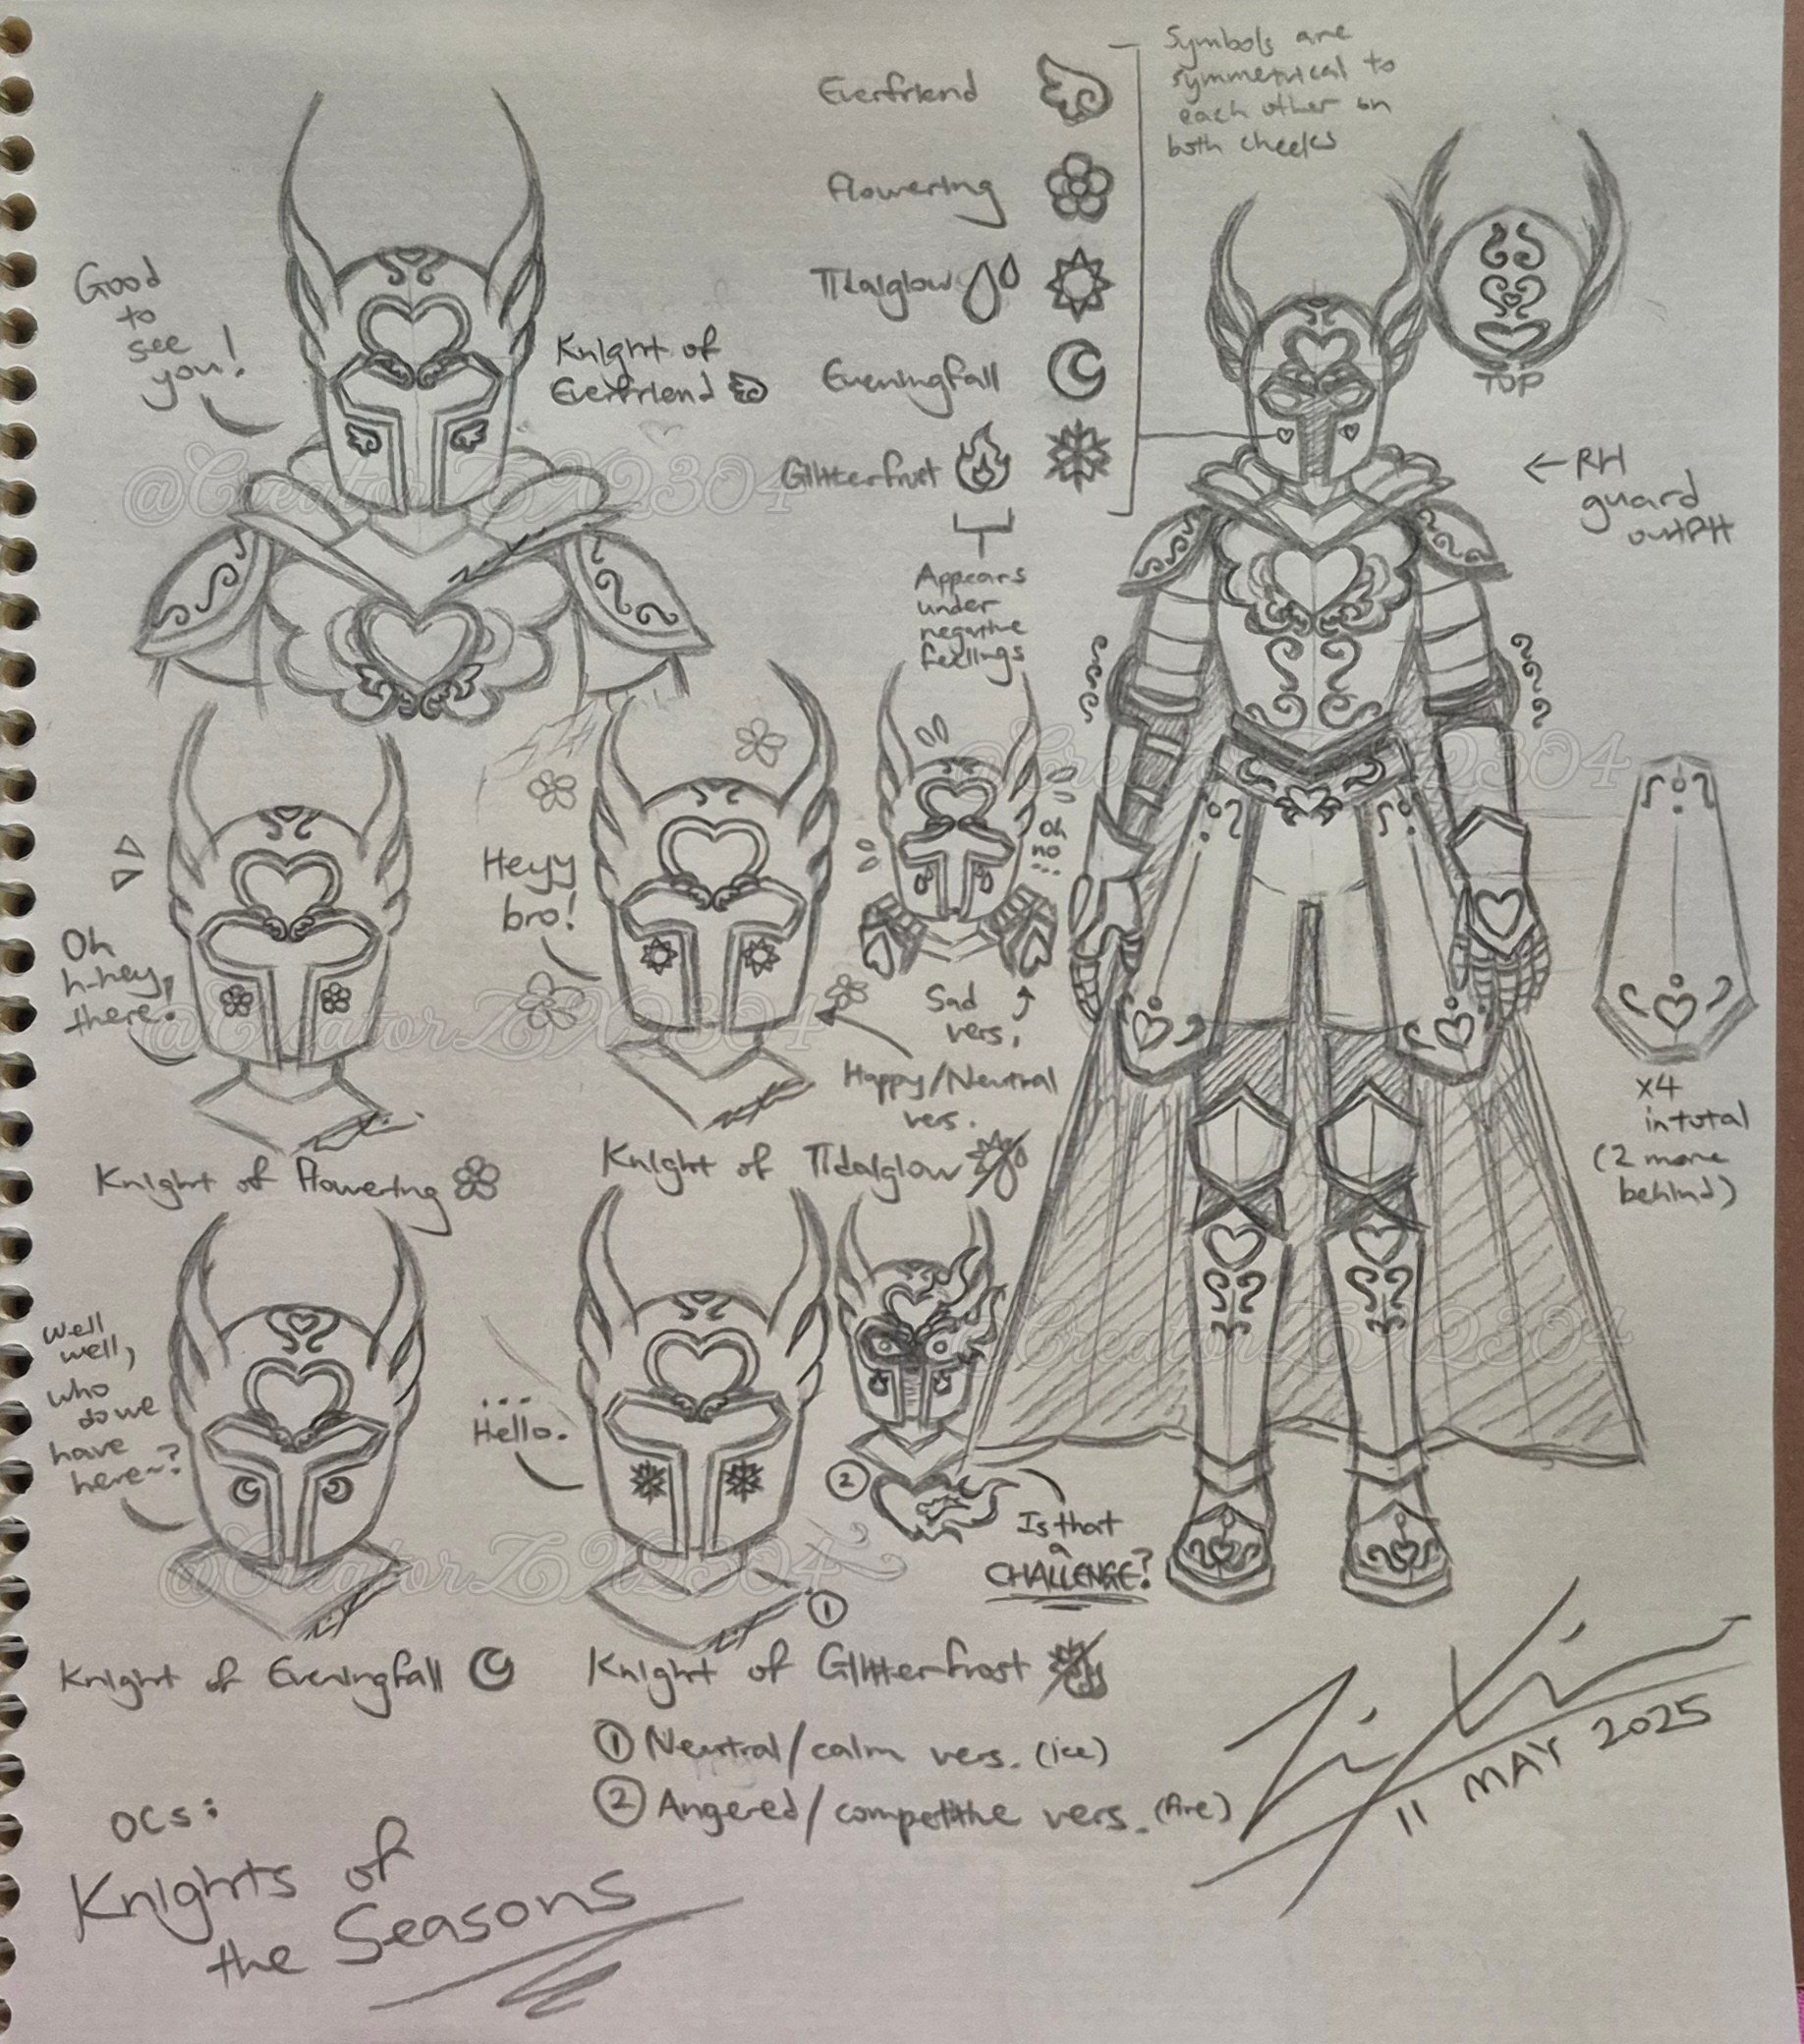 Everfriend
Flowering
Tidalglow
Eveningfall
Glitterfrost
Symbols are
symmetrical to
each other on
both cheeks
Appears
under
negative
feelings
TOP
← RH
guard
outfit
x4
in total
(2 more
behind)
Good
to
see
you!
Knight of
Everfriend
Oh
h-hey,
there.
Knight of Flowering
Heyy
bro!
Oh
no
...
Sad
vers.
Happy/Neutral
vers.
Knight of Tidalglow
Well
well,
who
do we
have
here~?
Knight of Eveningfall
...
Hello.
1
2
Is that
a
CHALLENGE?
Knight of Glitterfrost
1 Neutral/calm vers. (ice)
2 Angered/competitive vers. (fire)
OCs:
Knights of
the Seasons
11 MAY 2025
@CreatorZX2304
@CreatorZX2304
@CreatorZX2304
@CreatorZX2304
@CreatorZX2304